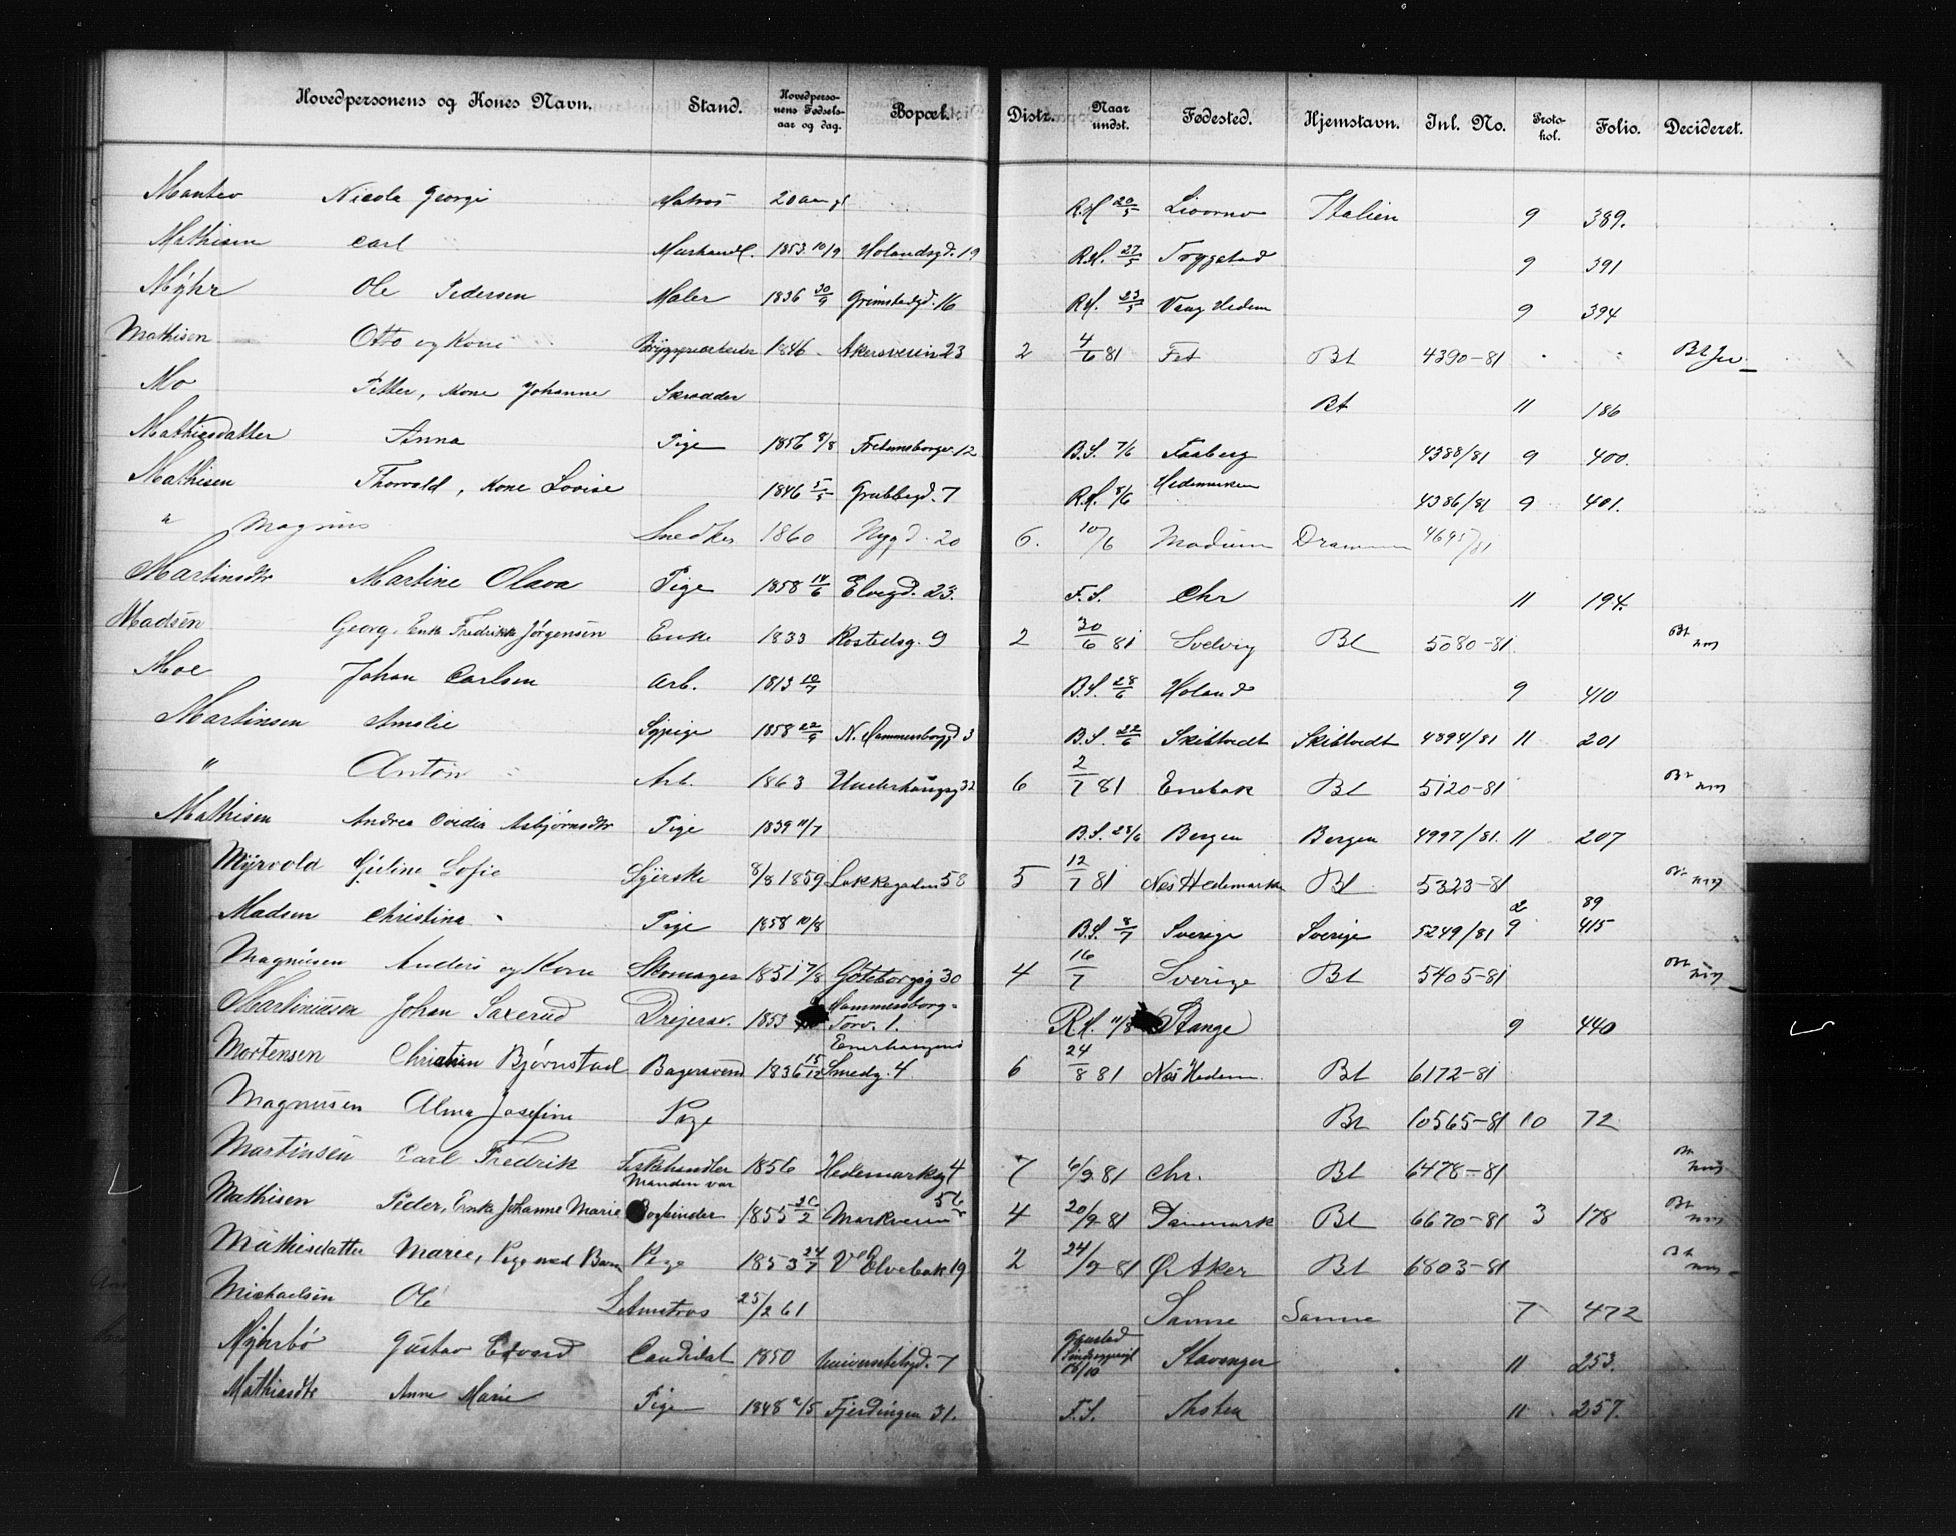 Hovedpersonens og Kones Navn. Stand. Hovedpersonens Fødselsaar og dag. Bopæl. Distr. Naar undst. Fødested. Hjemstavn. Inl. No. Protokol. Folio. Decideret.
Nicola Georgi Matros 20 aar gl R.H. 20/5 Livorno Italien 9 389.
Mathisen Carl 1853 10/9 Holandsgd. 19 R.H. 27/5 Trygstad 9 391
Myhr Ole Pedersen Maler 1836 30/9 Grimstadgd. 16 R.H. 23/5 Vang Hedem 9 394
Mathisen Otto og Kone Bryggeriarbeider 1846. Akersveien 23 2 4/6 81 Fet Bt 4390-81
Mo Petter, Kone Johanne Skrædder Bt 11 186
Mathiasdatter Anna Pige 1856 8/8 12 B.S. 7/6 Faaberg 4388/81 9 400.
Mathisen Thorvald, Kone Lovise 1846 5/5 Grubbegd. 7 R.H. 8/6 Hedemarken 4386/81 9 401.
" Magnus Snedker 1860 Nygd. 20 6. 10/6 Modum Drammen 4695/81
Martinsdtr Martine Olava Pige 1858 14/6 Elvegd. 23. F.S. Chr 11 194.
Madsen Georg, Enke Fredrikke Jørgensen Enke 1833 Rostedsg. 9 2 30/6 81 Svelvig Bt 5080-81
Moe Johan Carlsen Arb. 1813 10/7 B.S. 28/6 Holand 9 410
Martinsen Amalie Sypige 1858 22/9 N. Hammersborggd 3 B.S. 22/6 Skibtvedt Skibtvedt 4894/81 11 201
" Anton Arb. 1863 32 6 2/7 81 Enebak Bt 5120-81
Mathisen Andrea Ovidia Asbjørnsdtr Pige 1839 11/7 B.S. 28/6 Bergen Bergen 4997/81. 11 207
Myrvold Gueline Sofie Syerske 8/8 1859 Lakkegaden 58 5 12/7 81 Nes Hedemarken Bt 5323-81
2 89
Madsen Christina Pige 1858 10/8 B.S. 8/7 Sverige Sverige 5249/81 9 415
Magnusen Anders og Kone Skomager 1851 7/8 Gøteborgsg 30 4 16/7 Sverige Bt 5405-81
Martiniusen Johan Saxerud Drejersv. 1853 Hammersborg-
Torv. 1. R.H. 11/8 Stange 9 440
Enerhaugens
Mortensen Christian Bjørnstad Bagersvend 1836 15/12 Smedg. 4 6 24/8 81 Nes Hedem. Bt 6172-81
Magnusen Alma Josefine Pige Bt 10565-81 10 72
Martinsen Carl Fredrik Fiskhandler 1856 Hedemarksg 4 7 6/9 81 Chr. Bt 6478-81
Manden var
Mathisen Peder, Enke Johanne Marie Bogbinder 1855 26/2 Markveien 56 4 20/9-81 Danmark Bt 6670-81 3 178
Mathisdatter Maren, Pige med Barn Pige 1853 24/7 Ved Elvebak 19 2 24/9-81 Ø. Aker Bt 6803-81
Michaelsen Ole Letmatros 25/2 61 Sanne Sanne 7 472
Myhrbø Gustav Edvard Candidat 1850 Universitetsgd. 7 Gaustad
Sindssygeasyl
16/10 Stavanger 11 253.
Mathiasdtr Anne Marie Pige 1848 2/5 Fjerdingen 31. F.S. 11 257.